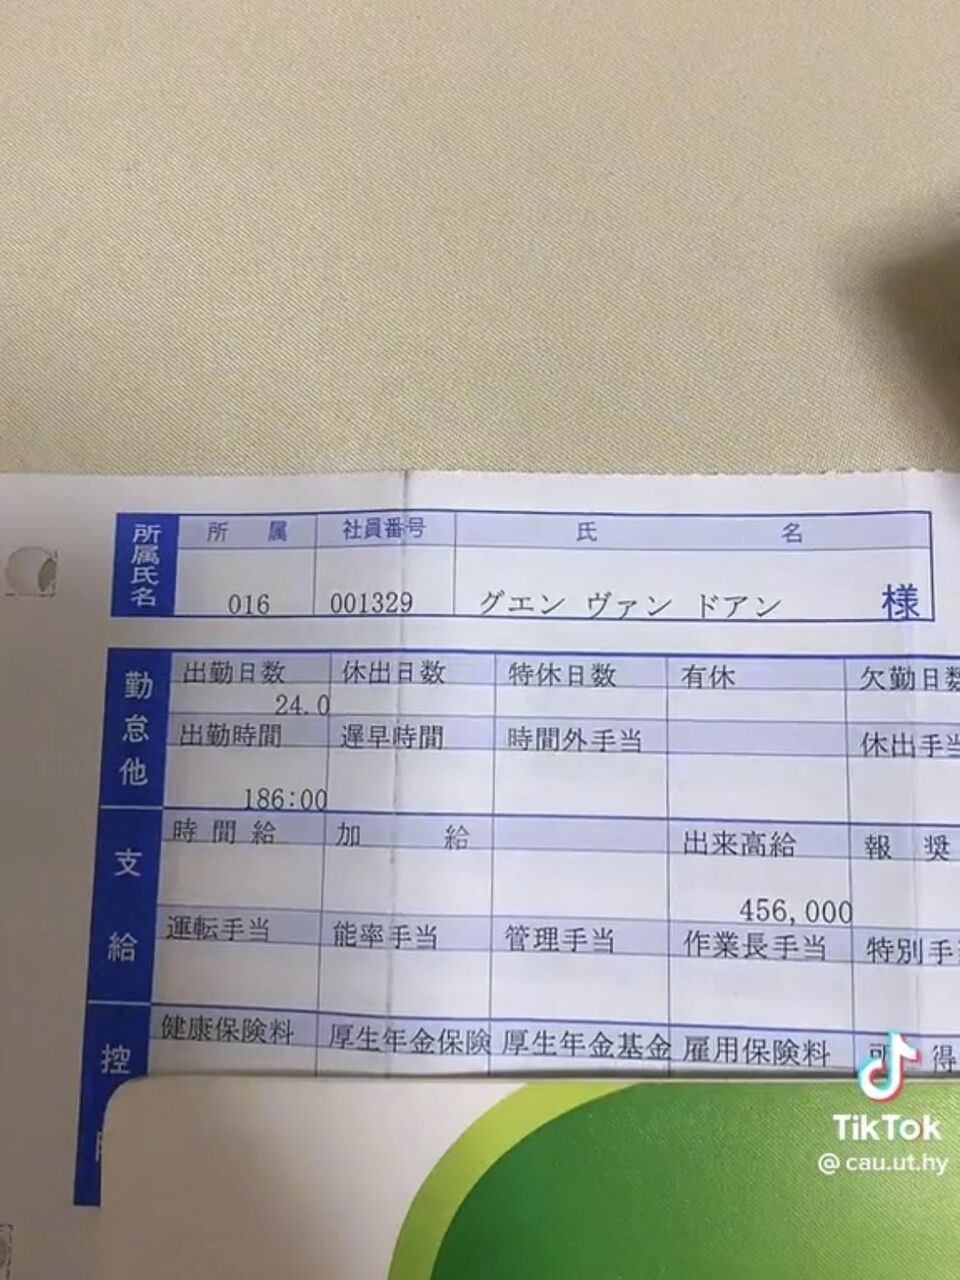 所属氏名
所　属 社員番号 氏　名
016 001329 グエン ヴァン ドアン 様
勤怠他
出勤日数 休出日数 特休日数 有休 欠勤日数
24.0
出勤時間 遅早時間 時間外手当 休出手当
186:00
支給
時間給 加　給 出来高給 報　奨
456,000
運転手当 能率手当 管理手当 作業長手当 特別手
控
健康保険料 厚生年金保険 厚生年金基金 雇用保険料 得
TikTok
@cau.ut.hy